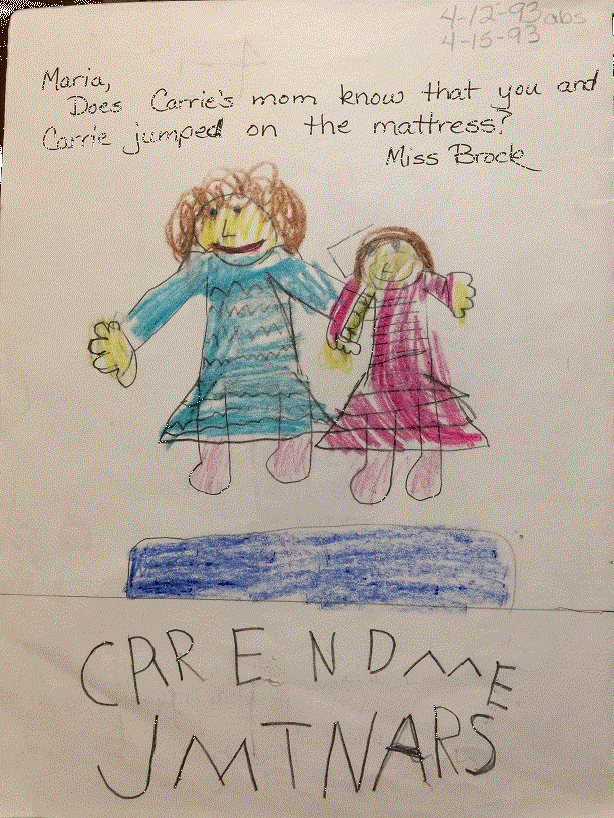 4-12-93 abs
4-15-93
Maria,
Does Carrie's mom know that you and
Carrie jumped on the mattress?
Miss Brock
CARE NDME
JMTNARS